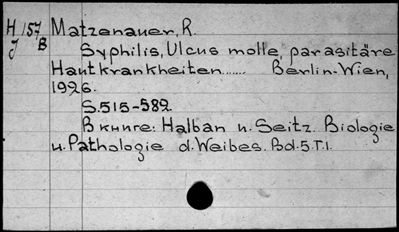 H J 157 B Matzenauer, R.
Syphilis, Ulcus molle, parasitäre
Hautkrankheiten...... Berlin-Wien,
1926.
S.515-582
В книге: Halban u. Seitz. Biologie
u. Pathologie d. Weibes. Bd. 5. T. 1.